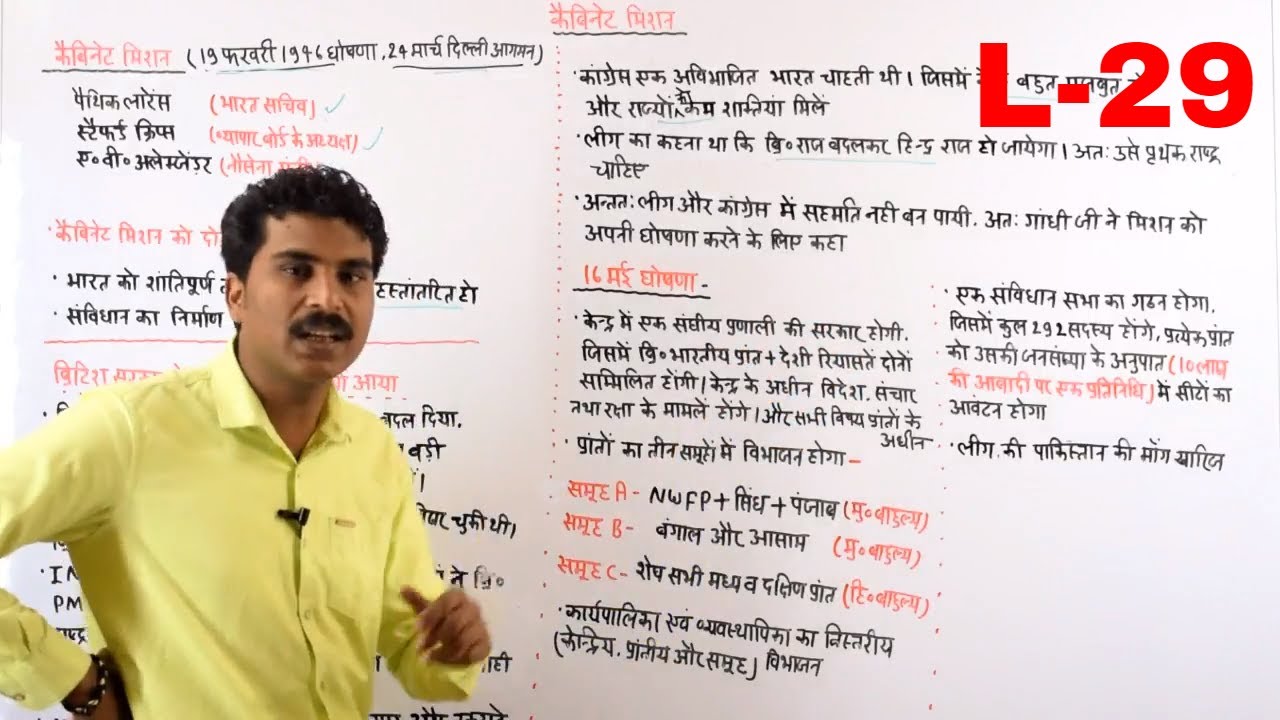 कैबिनेट मिशन
L-29
कैबिनेट मिशन (19 फरवरी 1946 घोषणा, 24 मार्च दिल्ली आगमन)
पैथिक लोरेंस (भारत सचिव)
स्टैफर्ड क्रिप्स (व्यापार बोर्ड के अध्यक्ष)
ए॰ वी॰ अलेग्जेंडर (नौसेना
·कैबिनेट मिशन को
· भारत को शांतिपूर्ण हस्तांतरित हो
· संविधान का निर्माण
ब्रिटिश आया
बदल दिया.
बड़ी
चुकी थी।
ने ब्रि॰
PM
· कांग्रेस एक अविभाजित भारत चाहती थी। जिसमें बहुत
और राज्यों को कम शक्तियां मिलें
· लीग का कहना था कि ब्रि॰ राज बदलकर हिन्दू राज हो जायेगा। अतः उसे पृथक राष्ट्र
चाहिए
· अन्ततः लीग और कांग्रेस में सहमति नही बन पायी. अतः गांधी जी ने मिशन को
अपनी घोषणा करने के लिए कहा
16 मई घोषणा -
· केन्द्र में एक संघीय प्रणाली की सरकार होगी.
जिसमें ब्रि॰ भारतीय प्रांत + देशी रियासतें दोनों
सम्मिलित होंगी। केन्द्र के अधीन विदेश, संचार
तथा रक्षा के मामलें होंगे। और सभी विषय प्रांतों के
अधीन
· प्रांतों का तीन समूहों में विभाजन होगा -
समूह A - NWFP + सिंध + पंजाब (मु॰ बाहुल्य)
समूह B - बंगाल और आसाम (मु॰ बाहुल्य)
समूह C - शेष सभी मध्य व दक्षिण प्रांत (हि॰ बाहुल्य)
· कार्यपालिका एवं व्यवस्थापिका का त्रिस्तरीय
(केन्द्रिय, प्रांतीय और समूह) विभाजन
· एक संविधान सभा का गठन होगा.
जिसमें कुल 292 सदस्य होंगे, प्रत्येक प्रांत
को उसकी जनसंख्या के अनुपात (10 लाख
की आबादी पर एक प्रतिनिधि) में सीटों का
आवंटन होगा
· लीग की पाकिस्तान की माँग खारिज